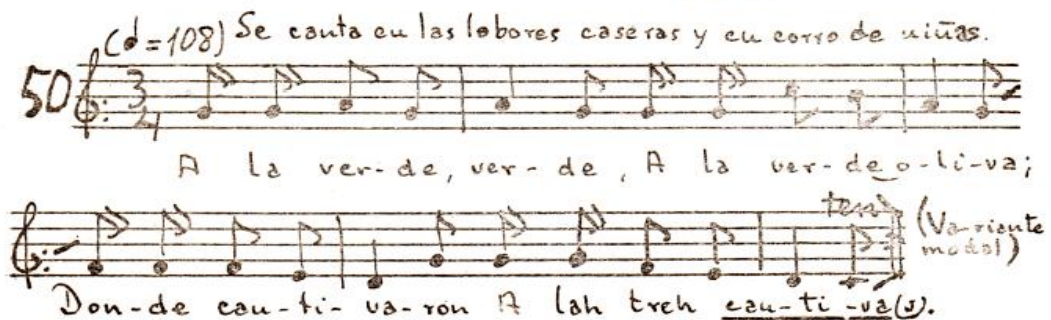 (♩=108) Se canta en las labores caseras y en corro de niñas.
50 3/4
A la ver-de, ver-de, A la ver-de o-li-va;
ten (Variante modal)
Don-de cau-ti-va-ron A lah treh cau-ti-va(s).